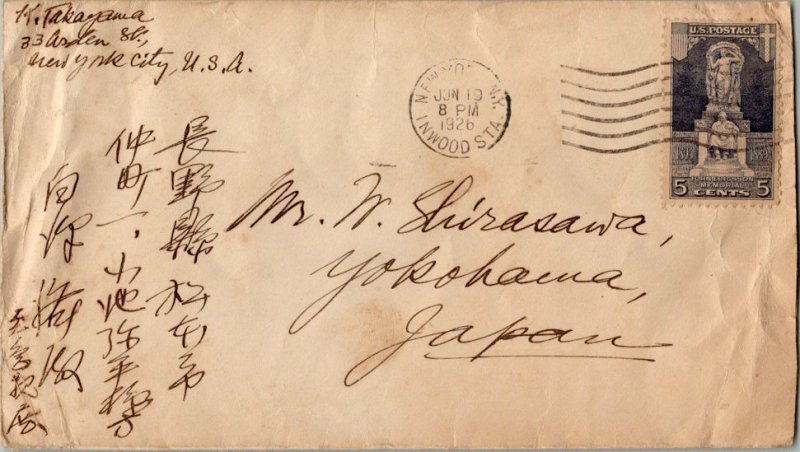 K. Takayama
33 Arden St.,
New York City, U.S.A.
NEW YORK, N.Y.
JUN 19
8 PM
1926
INWOOD STA.
U.S. POSTAGE
MEMORIAL
5 CENTS 5
Mr. W. Shirasawa,
Yokohama,
Japan
長野縣松本市
仲町一、小池弥平様方
白澤